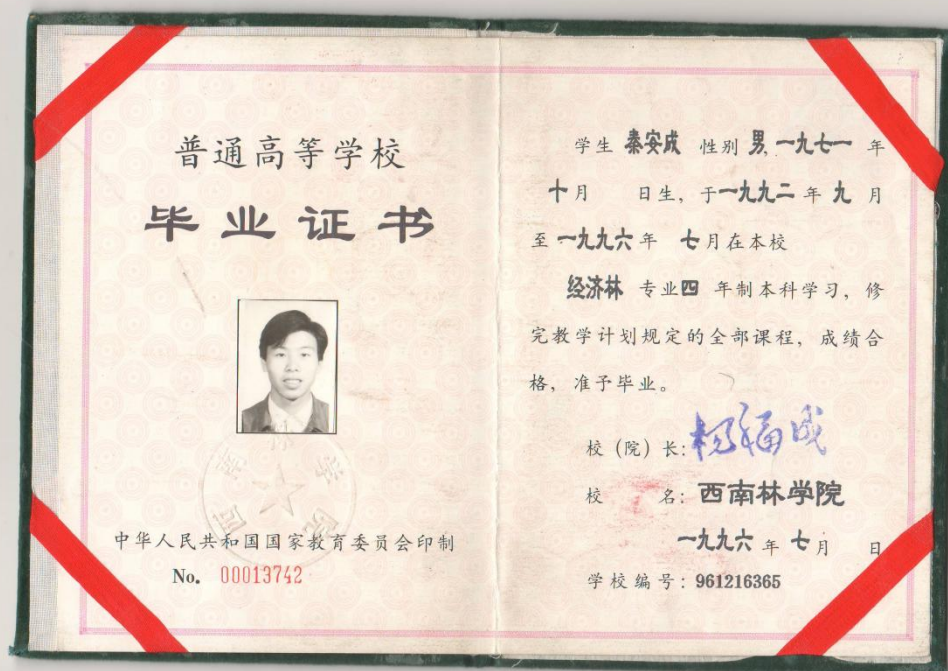 普通高等学校
毕业证书
中华人民共和国国家教育委员会印制
No. 00013742
学生 秦安成 性别 男, 一九七一 年
十月 日生, 于一九九二年 九 月
至一九九六年 七月在本校
经济林 专业四 年制本科学习, 修
完教学计划规定的全部课程, 成绩合
格, 准予毕业。
校 (院) 长: 杨福成
校 名: 西南林学院
一九九六 年 七月 日
学校编号: 961216365